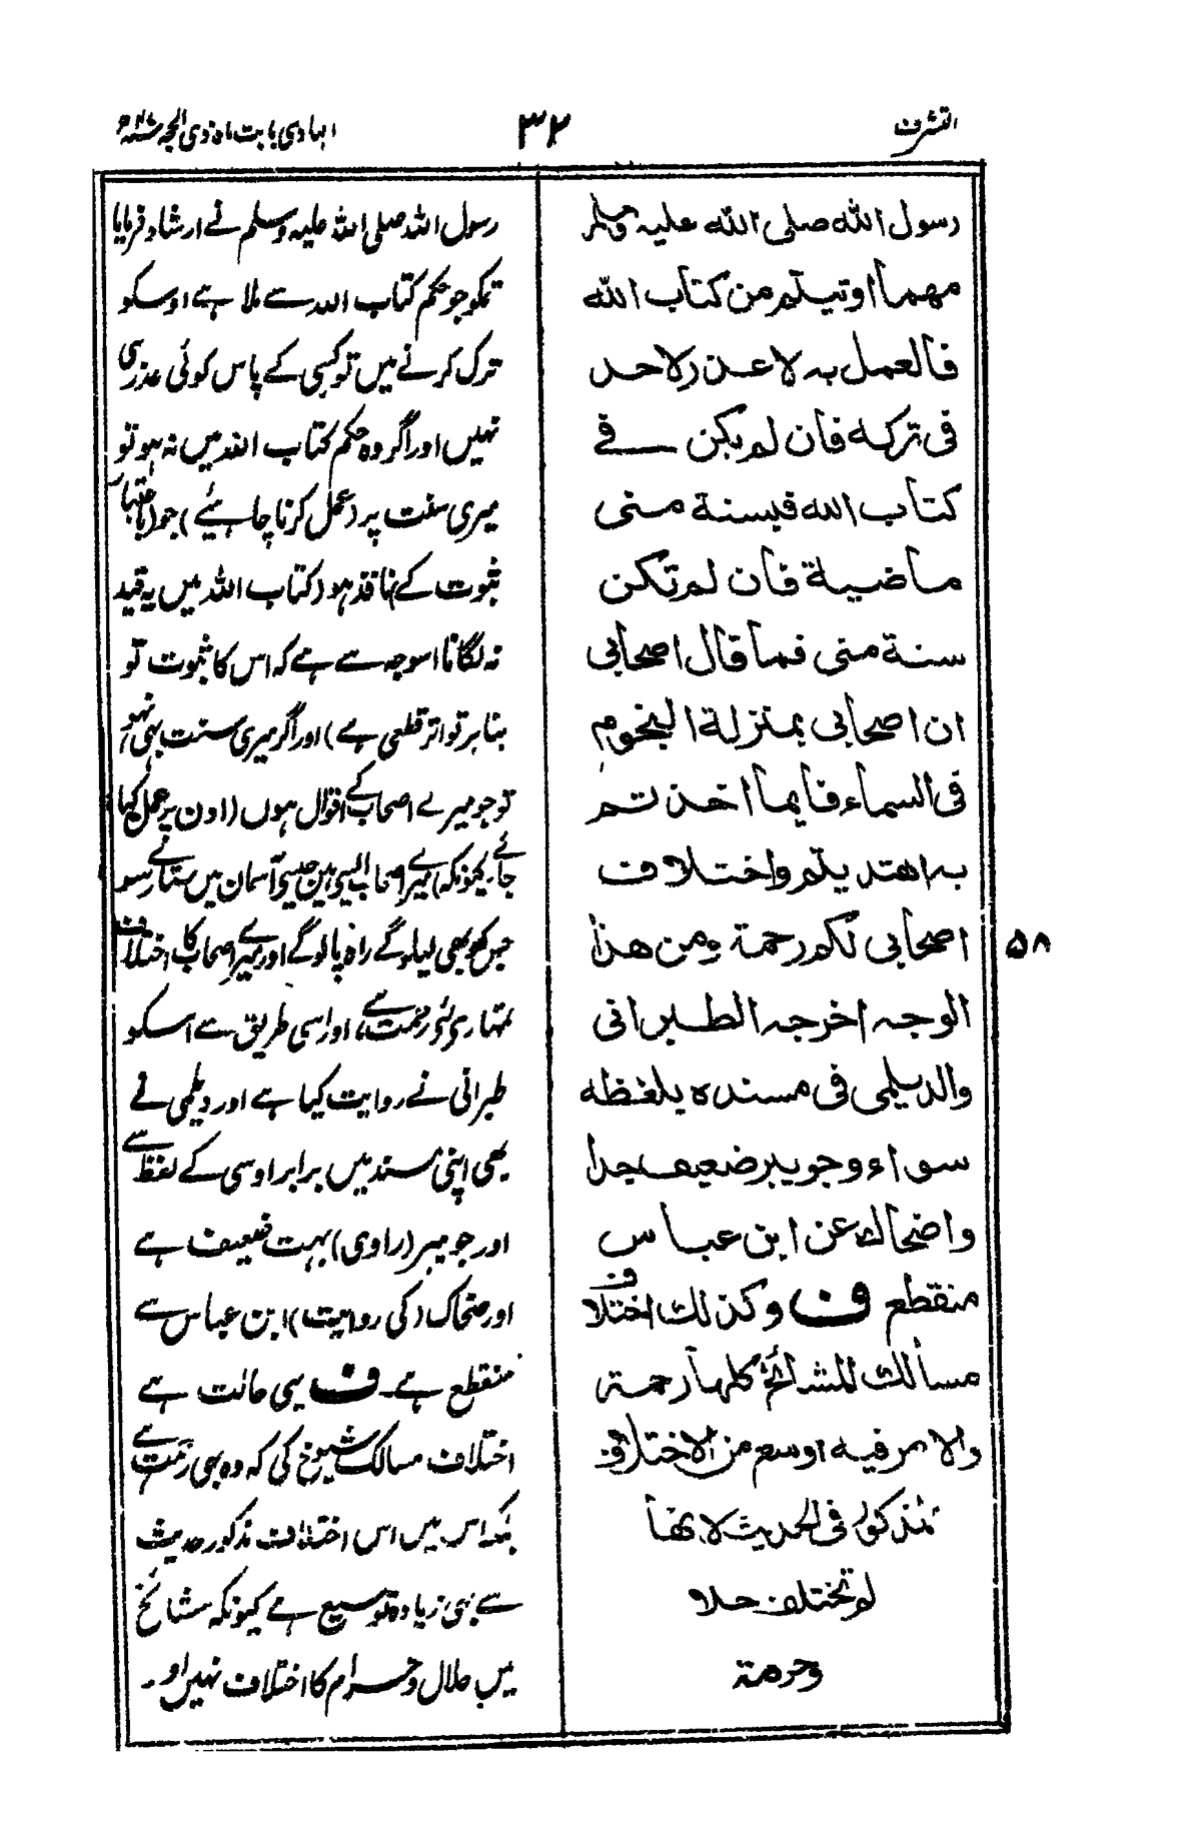 التشرف
٣٢
الہادی بابت ماہ ذی الحجہ
رسول الله صلى الله عليه وسلم
مهما اوتيتم من كتاب الله
فالعمل به لا عذر لاحد
فى تركه فان لم يكن فے
كتاب الله فبسنة منى
ماضية فان لم تكن
سنة منى فما قال اصحابى
ان اصحابى بمنزلة النجوم
فى السماء فايما اخذتم
به اهتديتم واختلاف
اصحابى لكم رحمة ومن هذا
٥٨
الوجه اخرجه الطبرانى
والديلمى فى مسنده بلفظه
سواء وجويبر ضعيف جدا
واضحاك عن ابن عباس
منقطع ف وكذلك اختلاف
مسالك المشائخ كلها رحمة
والامر فيه اوسع من الاختلاف
المذكور فى الحديث لانها
لم تختلف حلا
وحرمة
رسول اللہ صلی اللہ علیہ وسلم نے ارشاد فرمایا
تمکو جو حکم کتاب اللہ سے ملا ہے اوسکو
ترک کرنے میں تو کسی کے پاس کوئی عذر ہی
نہیں اور اگر وہ حکم کتاب اللہ میں نہ ہو تو
میری سنت پر (عمل کرنا چاہئیے) جو (باعتبار
ثبوت کے) نافذ ہو (کتاب اللہ میں یہ قید
نہ لگانا اسوجہ سے ہے کہ اس کا ثبوت تو
بنا بر تواتر قطعی ہے) اور اگر میری سنت بھی نہو
تو جو میرے اصحاب کے اقوال ہوں (اون پر عمل کیا
جائے کیونکہ) میرے اصحاب ایسے ہیں جیسے آسمان میں ستارے سو
جس کو بھی لیلو گے راہ پالو گے اور میرے اصحاب کا اختلاف
تمہارے لئے رحمت ہے، اور اسی طریق سے اسکو
طبرانی نے روایت کیا ہے اور دیلمی نے
بھی اپنی مسند میں برابر اوسی کے لفظ سے
اور جویبر (راوی) بہت ضعیف ہے
اور ضحاک (کی روایت) ابن عباس سے
منقطع ہے۔ ف یہی حالت ہے
اختلاف مسالک شیوخ کی کہ وہ بھی رحمت ہے
بلکہ اس میں اس اختلاف مذکور حدیث
سے بھی زیادہ توسیع ہے کیونکہ مشائخ
میں حلال و حرام کا اختلاف نہیں اور۔